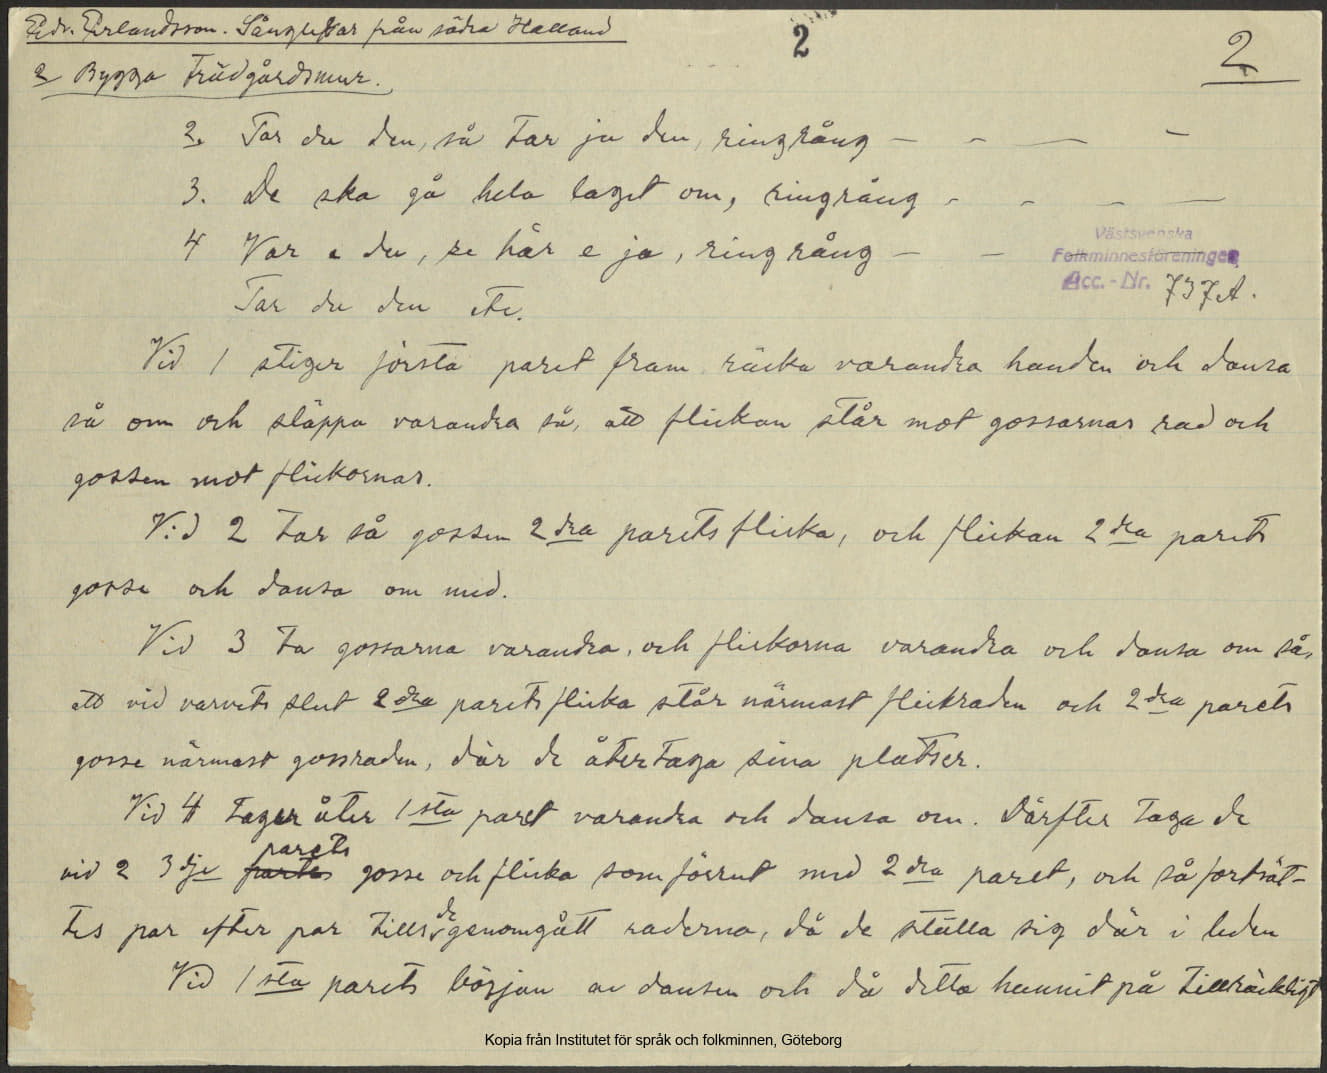 Edv. Erlandsson. Sånglekar från södra Halland
2
2
2 Bygga Trädgårdsmur.
2. Tar du den, så tar ja den, ringrång — - — -
3. De ska gå hela laget om, ringrång - - - —
4 Var e du, se här e ja, ringrång — —
Västsvenska
Folkminnesföreningen
Acc.-Nr. 737A.
Tar du den etc.
Vid 1 stiger första paret fram räcka varandra handen och dansa
så om och släppa varandra så, att flickan står mot gossarnas rad och
gossen mot flickornas.
Vid 2 tar så gossen 2dra parets flicka, och flickan 2dra parets
gosse och dansa om med.
Vid 3 ta gossarna varandra, och flickorna varandra och dansa om så,
att vid varvets slut 2dra parets flicka står närmast flickraden och 2dra parets
gosse närmast gossraden, där de återtaga sina platser.
Vid 4 tager åter 1sta paret varandra och dansa om. Därfter taga de
vid 2 3dje parets gosse och flicka som förrut med 2dra paret, och så fortsät-
tes par efter par tills de genomgått raderna, då de ställa sig där i leden
Vid 1sta parets början av dansen och då detta hunnit på tillräckligt
Kopia från Institutet för språk och folkminnen, Göteborg